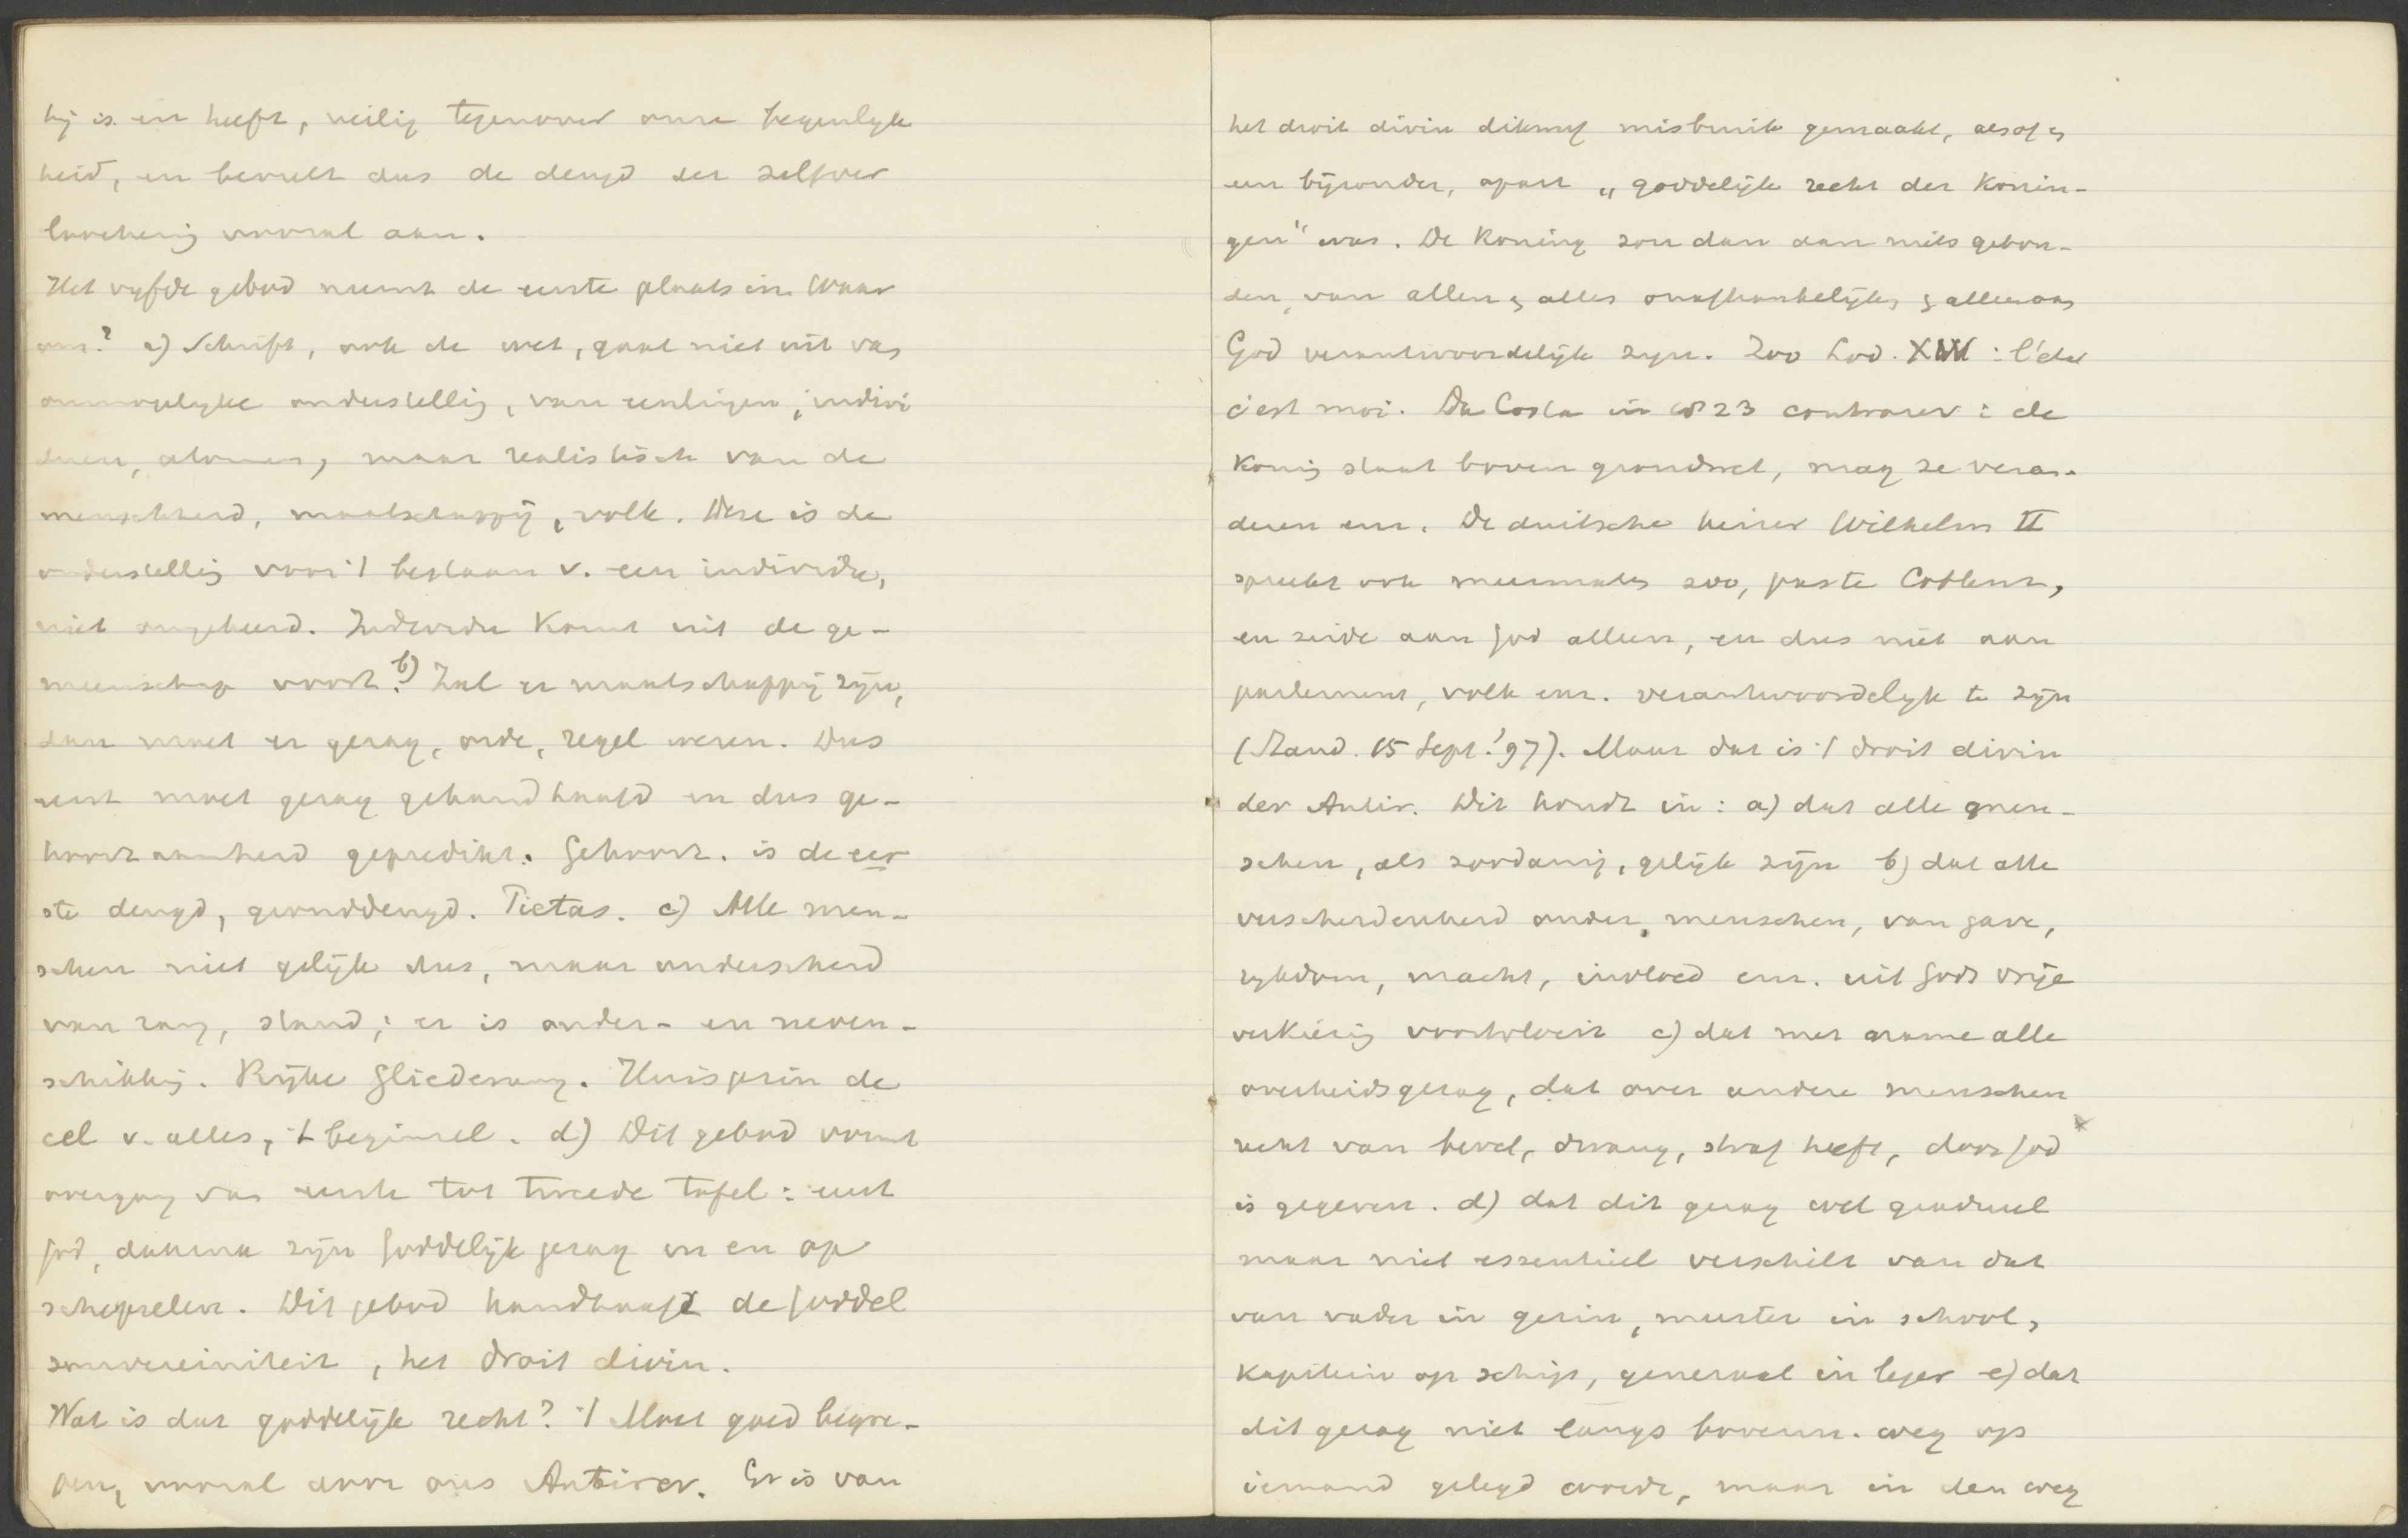 hij is en heeft, veilig tegenover onze begeerlijk
heid, en beveelt dus de deugd der zelfver
loochenig vooral aan.
Het vijfde gebod neemt de eerste plaats in. Waar
om? a) Schrift, ook de wet, gaat niet uit van
onmogelijke onderstellig, van eenlingen, indivi
duen, atomen, maar realistisch van de
menschheid, maatschappij, volk. Deze is de
onderstellig voor 't bestaan v. een individu,
niet omgekeerd. Individu komt uit de ge-
meenschap voort. b) Zal er maatschappij zijn,
dan moet er gezag, orde, regel wezen. Dus
eerst moet gezag gehandhaafd en dus ge-
hoorzaamheid gepredikt. Gehoorz. is de eer
ste deugd, gronddeugd. Pietas. c) Alle men-
schen niet gelijk dus, maar onderscheid
van rang, stand; er is onder- en neven-
schikkig. Rijke Gliederung. Huisgezin de
cel v. alles, 't beginsel. d) Dit gebod vormt
overgang van eerste tot tweede tafel: eerst
God, daarna zijn Goddelijk gezag in en op
schepselen. Dit gebod handhaaft de Goddel
souvereiniteit, het droit divin.
Wat is dat goddelijk recht? 't Moet goed begre-
pen, vooral door ons Antirev. Er is van
het droit divin dikwijf misbruik gemaakt, alsof er
een bijzonder, apart „goddelijk recht der Konin-
gen" was. De Koning zou dan aan niets gebon-
den, van allen en alles onafhankelijk, en alleen aan
God verantwoordelijk zijn. Zoo Lod. XIV: l'état
c'est moi. Da Costa in 1823 contrarev: de
Konig staat boven grondwet, mag ze veran-
deren enz. De duitsche keizer Wilhelm II
spreekt ook meermalen zoo, paste Coblenz,
en zeide aan God alleen, en dus niet aan
parlement, volk enz. verantwoordelijk te zijn
(Stand. 15 Sept. '97). Maar dat is 't droit divin
der Antir. Dit houdt in: a) dat alle men-
schen, als zoodanig, gelijk zijn b) dat alle
verscheidenheid onder menschen, van gave,
rijkdom, macht, invloed enz. uit Gods vrije
verkiezig voortvloeit c) dat met name alle
overheidsgezag, dat over andere menschen
recht van bevel, dwang, straf heeft, door God
is gegeven. d) dat dit gezag wel gradueel
maar niet essentieel verschilt van dat
van vader in gezin, meester in school,
kapitein op schip, generaal in leger e) dat
dit gezag niet langs bovenn. weg op
iemand gelegd wordt, maar in den weg